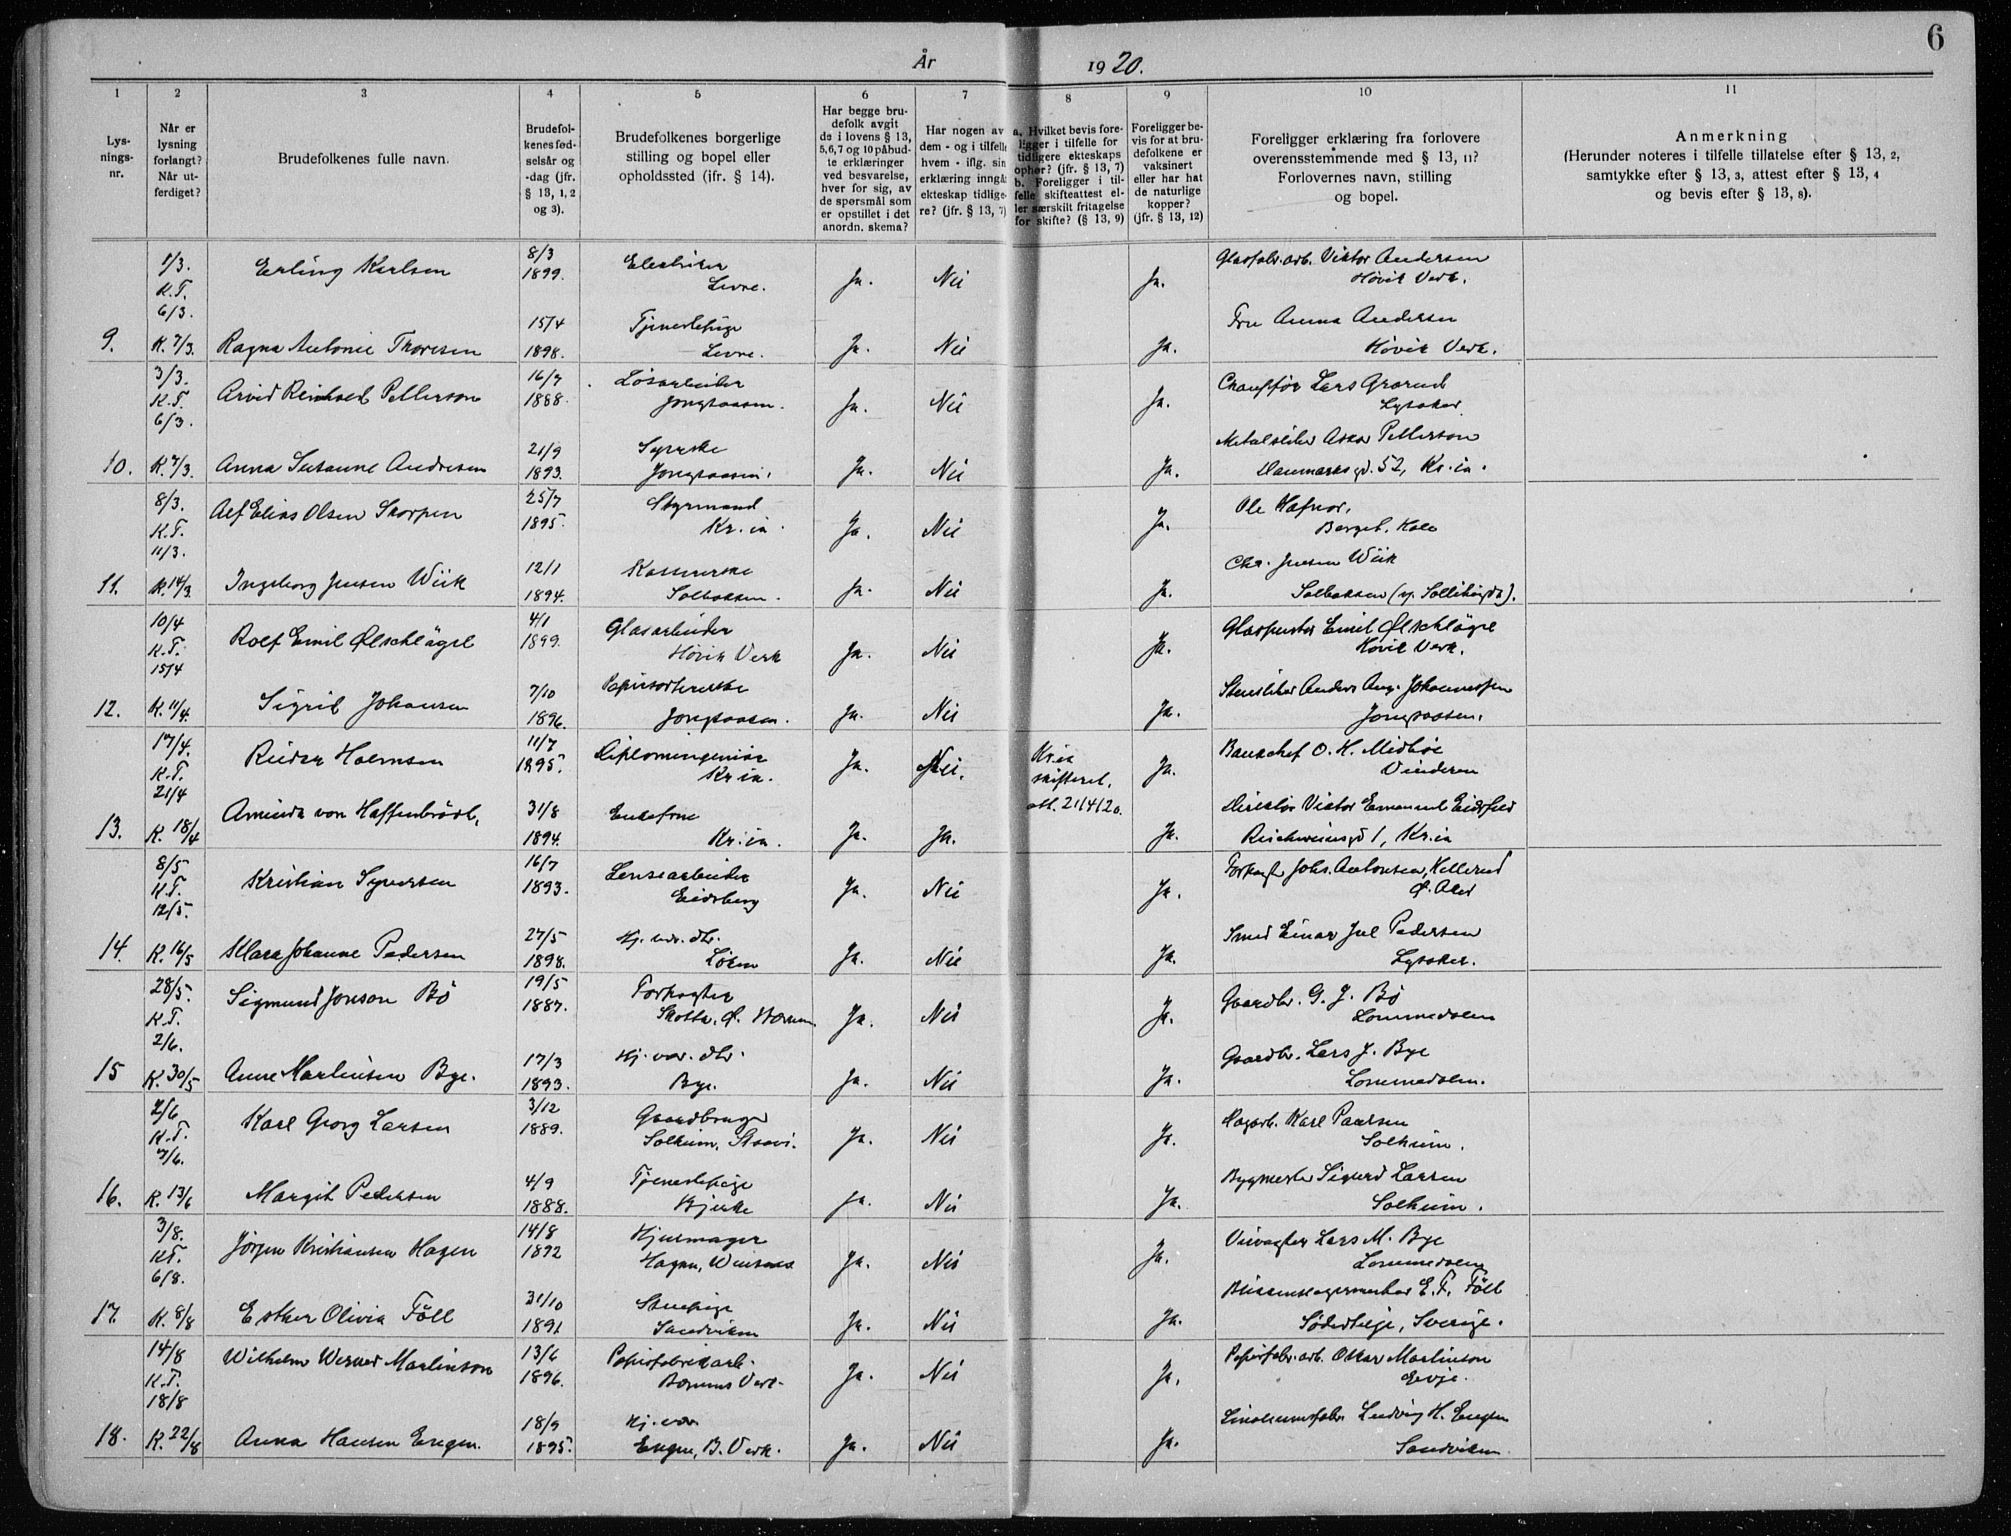 6
År 1920.
1 2 3 4 5 6 7 8 9 10 11
Lys-
nings-
nr.
Når er
lysning
forlangt?
Når ut-
ferdiget?
Brudefolkenes fulle navn.
Brudefol-
kenes fød-
selsår og
-dag (jfr.
§ 13, 1, 2
og 3).
Brudefolkenes borgerlige
stilling og bopel eller
opholdssted (ifr. § 14).
Har begge bru-
defolk avgit
de i lovens § 13,
5,6,7 og 10 påbud-
te erklæringer
ved besvarelse,
hver for sig, av
de spørsmål som
er opstillet i det
anordn. skema?
Har nogen av
dem - og i tilfelle
hvem - iflg. sin
erklæring inngåt
ekteskap tidlige-
re? (jfr. § 13, 7)
a. Hvilket bevis fore-
ligger i tilfelle for
tidligere ekteskaps
ophør? (jfr. § 13, 7)
b. Foreligger i til-
felle skifteattest el-
ler særskilt fritagelse
for skifte? (§ 13, 9)
Foreligger be-
vis for at bru-
defolkene er
vaksinert
eller har hat
de naturlige
kopper?
(jfr. § 13, 12)
Foreligger erklæring fra forlovere
overensstemmende med § 13, 11?
Forlovernes navn, stilling
og bopel.
Anmerkning
(Herunder noteres i tilfelle tillatelse efter § 13, 2,
samtykke efter § 13, 3, attest efter § 13, 4
og bevis efter § 13, 8).
1/3. K.T. 6/3. Erling Karlsen 8/3 1899. Electriker Levre. Ja. Nei Ja. Glasfabr. arb. Viktor Andersen Høvik Verk.
9. K. 7/3. Ragna Antonie Thoresen 15/4 1898. Tjenestepige Levre. Ja. Nei Ja. Fru Anna Andersen Høvik Verk.
3/3. K.T. 6/3. Arvid Reinhold Petterson 16/7 1888. Løsarbeider Jongsaasen. Ja. Nei Ja. Chauffør Lars Grorud Lysaker
10. K. 7/3. Anna Susanne Andresen 21/9 1893. Syerske Jongsaasen. Ja. Nei Ja. Metalsliber Petterson Danmarksgd. 52, Kr.ia.
8/3. K.T. 11/3. Alf Elias Olsen Skorpen 25/7 1895. Styrmand Kr.ia. Ja. Nei Ja. Ole Hafnor, Berget, Hole
11. K. 14/3. Ingeborg Jensen Wiik 12/1 1894. Kassererske Solbakken. Ja. Nei Ja. Chr. Jensen Wiik Solbakken
10/4 K.T. 15/4 Rolf Emil Ølschlägel 4/1 1899. Glasarbeider Høvik Verk Ja. Nei Ja. Glaspuster Emil Ølschlägel Høvik Verk.
12. K. 11/4. Sigrid Johansen 7/10 1896. Papirsortererske Jongsaasen. Ja. Nei Ja. Stensliber Anders Aug. Johannessen Jongsaasen.
17/4. K.T. 21/4 Reidar Holmsen 11/7 1895. Diplomingeniør Kr.ia. Ja. Nei. Kr.ia skifteret, att. 21/4 20. Ja. Bankchef O. H. Midbøe Vinderen
13. K. 18/4 Aminda von Haffenbrädl, 31/8 1894. Enkefrue Kr.ia. Ja. Ja. Ja. Direktør Viktor Emanuel Reichweinsgd 1, Kr.ia
8/5 K.T. 12/5. Kristian Syversen 16/7 1893. Lensearbeider Eidsberg Ja. Nei Ja. Forvagt Johs. Antonsen, Kellerud Ø. Aker
14. K. 16/5 Klara Johanne Pedersen 27/5 1898. Hj. vær. dtr. Løken Ja. Nei Ja. Smed Einar Jul Pedersen Lysaker.
28/5. K.T. 2/6. Sigmund Jonson Bö 19/5 1887. Forvagter Skotta, Ø. Bærum Ja. Nei Ja. Gaardbr. G. J. Bö Lommedalen
15 K. 30/5 Anne Martinsen Bye. 17/3 1893. Hj. vær. dtr. Bye. Ja. Nei Ja. Gaardbr. Lars J. Bye Lommedalen.
2/6 K.T. 7/6. Karl Georg Larsen 3/12 1889. Gaardbruger Solheim, Staavi. Ja. Nei Ja. Hagarb. Karl Paulsen Solheim.
16. K. 13/6 Margit Pedersen 4/9 1888. Tjenestepige Bjerke Ja. Nei Ja. Bygmester Sigurd Larsen Solheim.
3/8. K.T. 6/8. Jörgen Kristiansen Hagen 14/8 1892 Hjulmager Hagen Ja. Nei Ja. Veivogter Lars M. Bye Lommedalen
17. K. 8/8 Esther Olivia Föll 31/10 1891 Stuepige Sandviken Ja. Nei Ja. Blikkenslagermester E. F. Föll Södertelje, Sverige.
14/8 K.T. 18/8 Wilhelm Werner Martinson 13/6 1896. Papirfabrikarb. Bærums Verk. Ja. Nei Ja. Papirfabr. arb. Oskar Martinson Evje.
18. K. 22/8 Anna Hansen Engen. 18/9 1895. Hj. vær Engen, B. Verk. Ja. Nei Ja. Linoleumsfabr. Ludvig H. Engen Sandviken